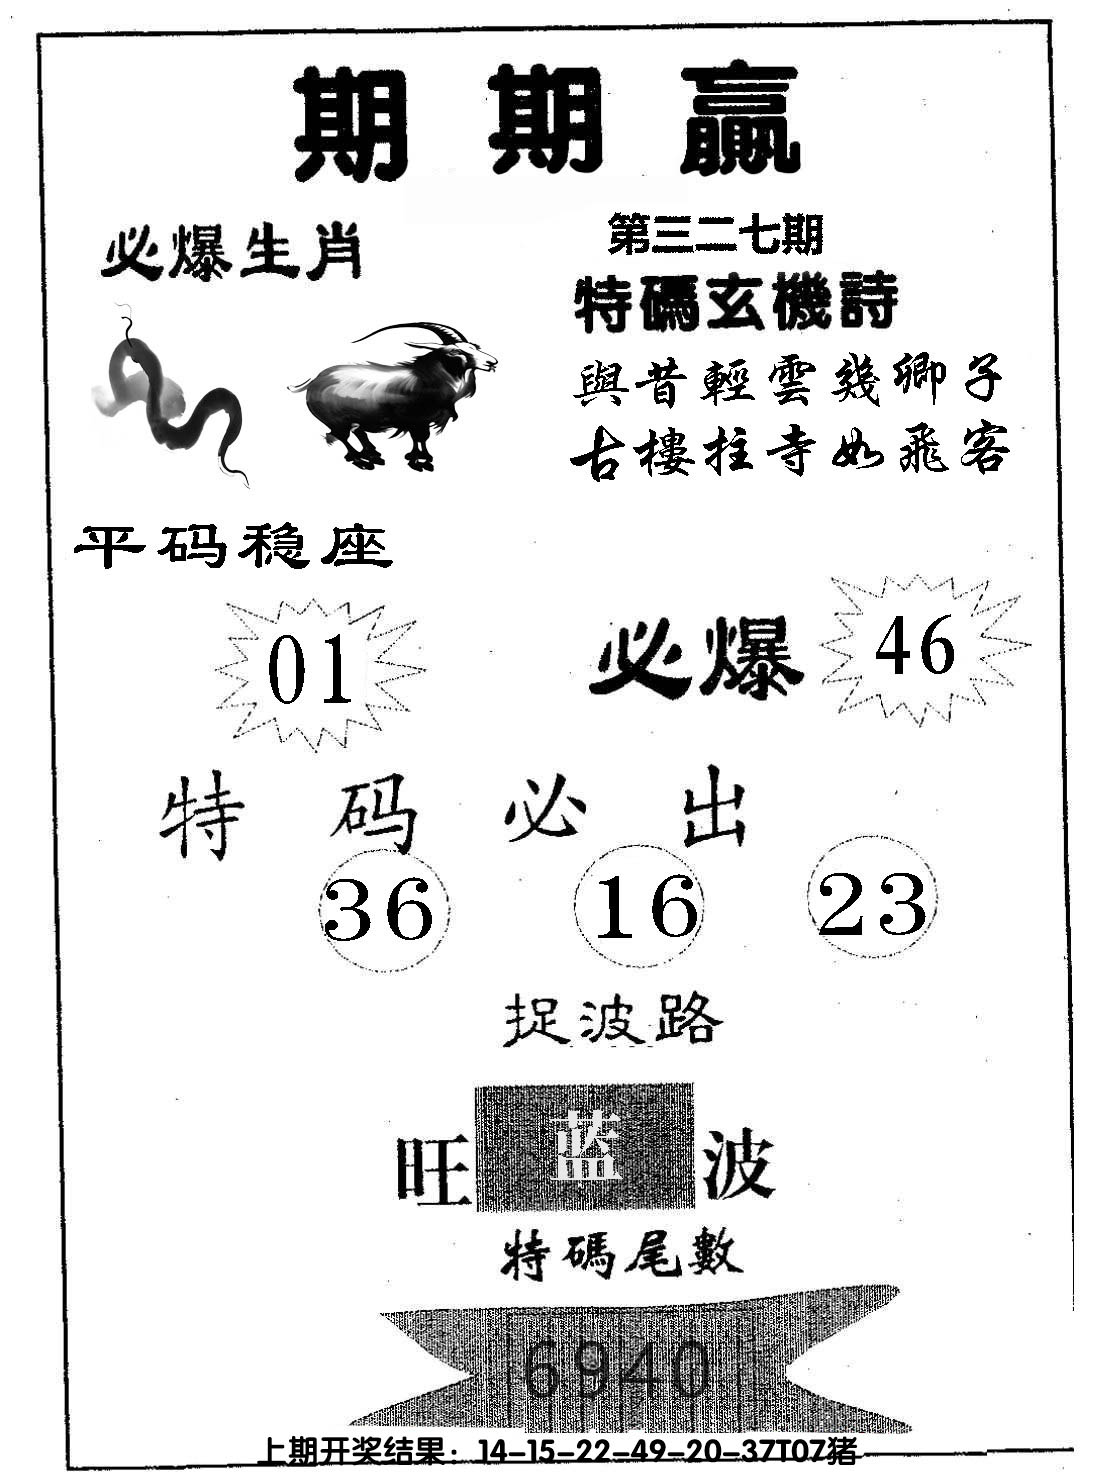 期期贏
必爆生肖
第三二七期
特碼玄機詩
與昔輕雲幾卿子
古樓拄寺如飛客
平码稳座
01
必爆
46
特码必出
36 16 23
捉波路
旺蓝波
特碼尾數
6940
上期开奖结果：14-15-22-49-20-37T07猪